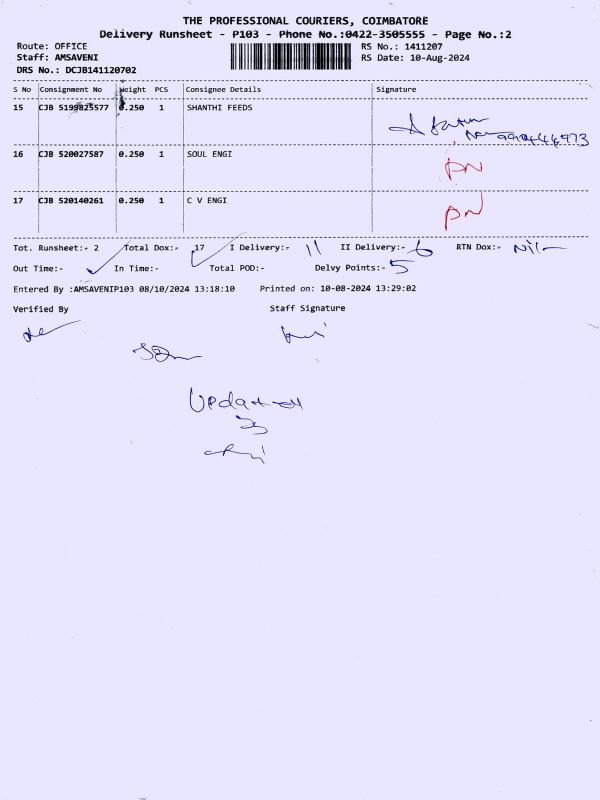 THE PROFESSIONAL COURIERS, COIMBATORE
Delivery Runsheet - P103 - Phone No.:0422-3505555 - Page No.:2
Route: OFFICE RS No.: 1411207
Staff: AMSAVENI RS Date: 10-Aug-2024
DRS No.: DCJB141120702
S No Consignment No Weight PCS Consignee Details Signature
15 CJB 5199825577 0.250 1 SHANTHI FEEDS
16 CJB 520027587 0.250 1 SOUL ENGI PN
17 CJB 520140261 0.250 1 C V ENGI PN
Tot. Runsheet:- 2 Total Dox:- 17 I Delivery:- 11 II Delivery:- 6 RTN Dox:- Nil
Out Time:- In Time:- Total POD:- Delvy Points:- 5
Entered By :AMSAVENIP103 08/10/2024 13:18:10 Printed on: 10-08-2024 13:29:02
Verified By Staff Signature